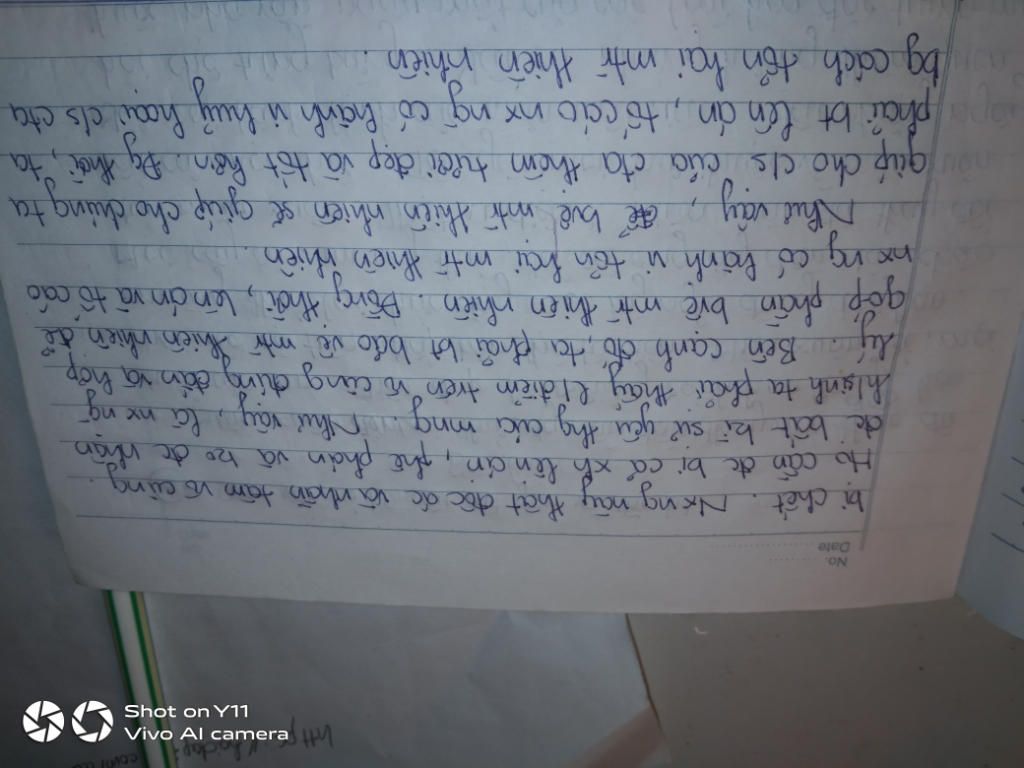 No. ..........
Date ....................
bị chết. Nxng này thật độc ác và nhẫn tâm vô cùng.
Họ cần đc bị cả xh lên án, phê phán và ko đc nhận
đc bất kì sự yêu thg của mng. Như vậy, là nx ng
hlsinh ta phải thấy qđiểm trên vô cùng đúng đắn và hợp
lý. Bên cạnh đó, ta phải bt bảo vệ mtr thiên nhiên để
góp phần bvệ mtr thiên nhiên. Đồng thời, lên án và tố cáo
nx ng có hành vi tổn hại mtr thiên nhiên.
Như vậy, để bvệ mtr thiên nhiên sẽ giúp cho chúng ta
giúp cho c/s của cta thêm tươi đẹp và tốt hơn. Đg thời, ta
phải bt lên án, tố cáo nx ng có hành vi huỷ hoại c/s cta
bg cách tổn hại mtr thiên nhiên.
Shot on Y11
Vivo AI camera